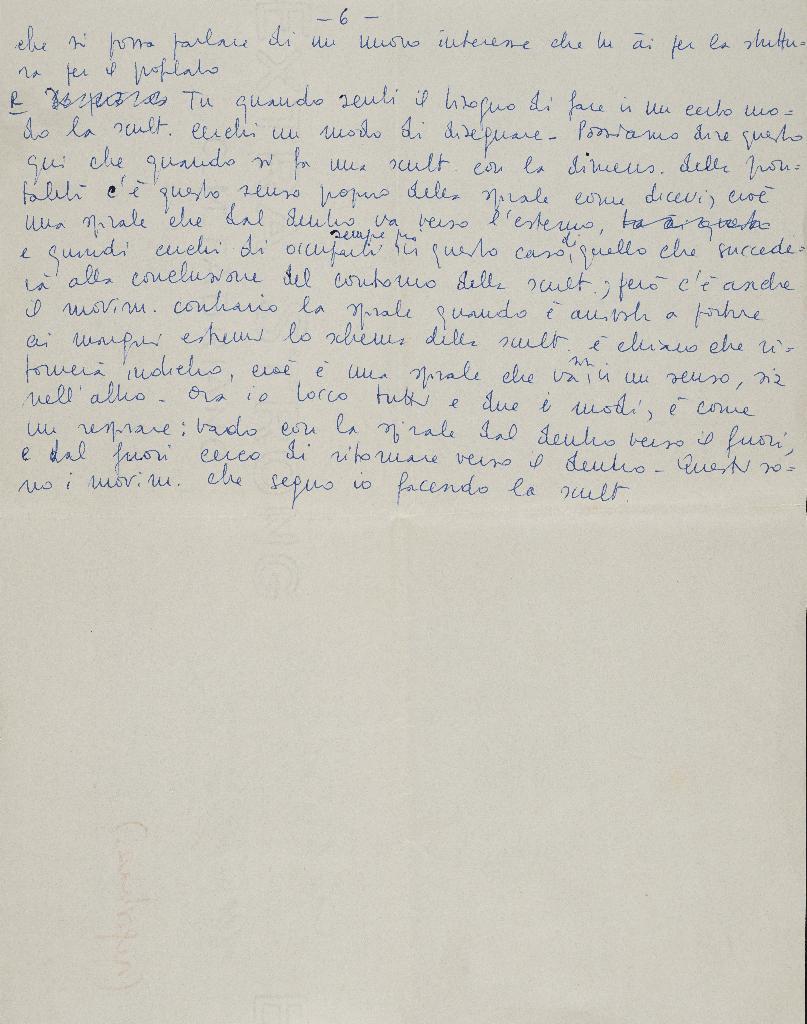 - 6 -
che si possa parlare di un nuovo interesse che tu ài per la struttu=
ra per il profilato
R Tu quando senti il bisogno di fare in un certo mo=
do la scult. cerchi un modo di disegnare - Possiamo dire questo
qui che quando si fa una scult. con la dimens. della fron=
talità c'è questo senso proprio della spirale come dicevi, cioè
una spirale che dal dentro va verso l'esterno, tu ài questo
sempre più di
e quindi cerchi di occuparti in questo caso, quello che succede=
rà alla conclusione del contorno della scult.; però c'è anche
il movim. contrario la spirale quando è arrivata a portare
ai margini estremi lo schema della scult. è chiaro che ri=
sia
tornerà indietro, cioè è una spirale che va in un senso, sia
nell'altro - Ora io tocco tutti e due i modi, è come
un respirare: vado con la spirale dal dentro verso il fuori,
e dal fuori cerco di ritornare verso il dentro - Questi so=
no i movim. che seguo io facendo la scult.